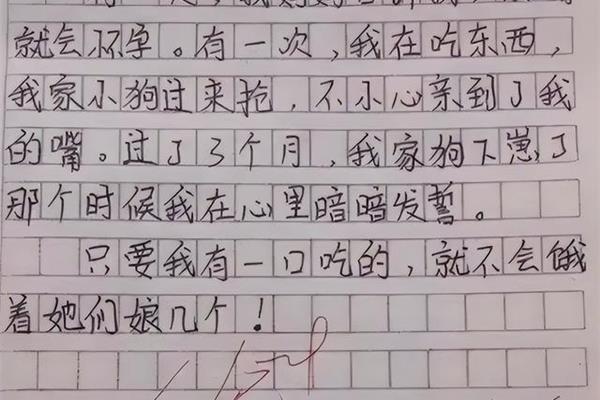 就会怀孕。有一次，我在吃东西，
我家小狗过来抢，不小心亲到了我
的嘴。过了3个月，我家狗下崽了
那个时候我在心里暗暗发誓。
只要我有一口吃的，就不会饿
着她们娘几个！